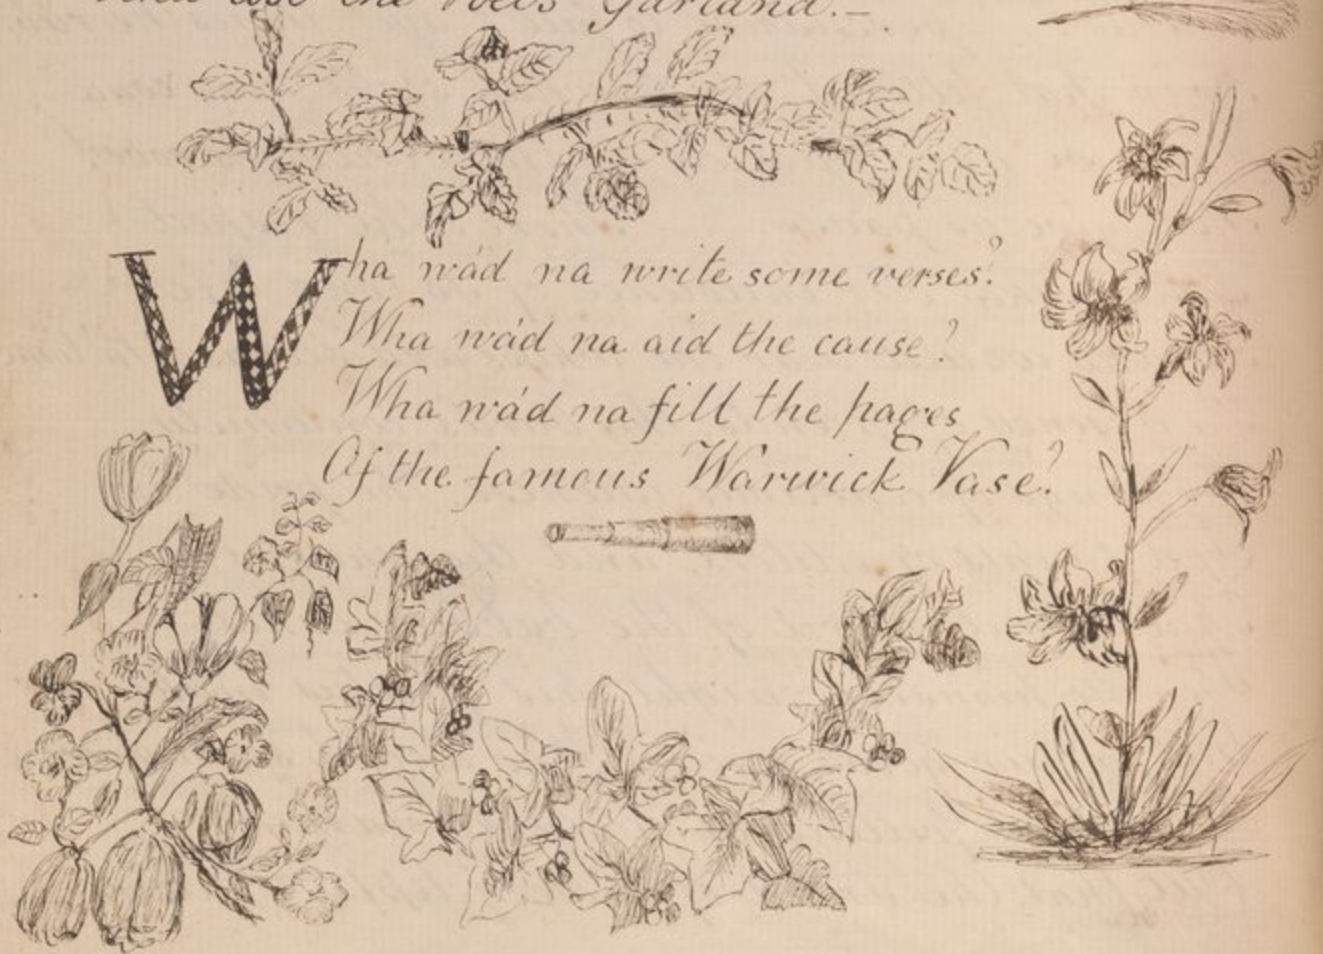 the Poets Garland.—
Wha wa'd na write some verses?
Wha wa'd na aid the cause?
Wha wa'd na fill the pages
Of the famous Warwick Vase?